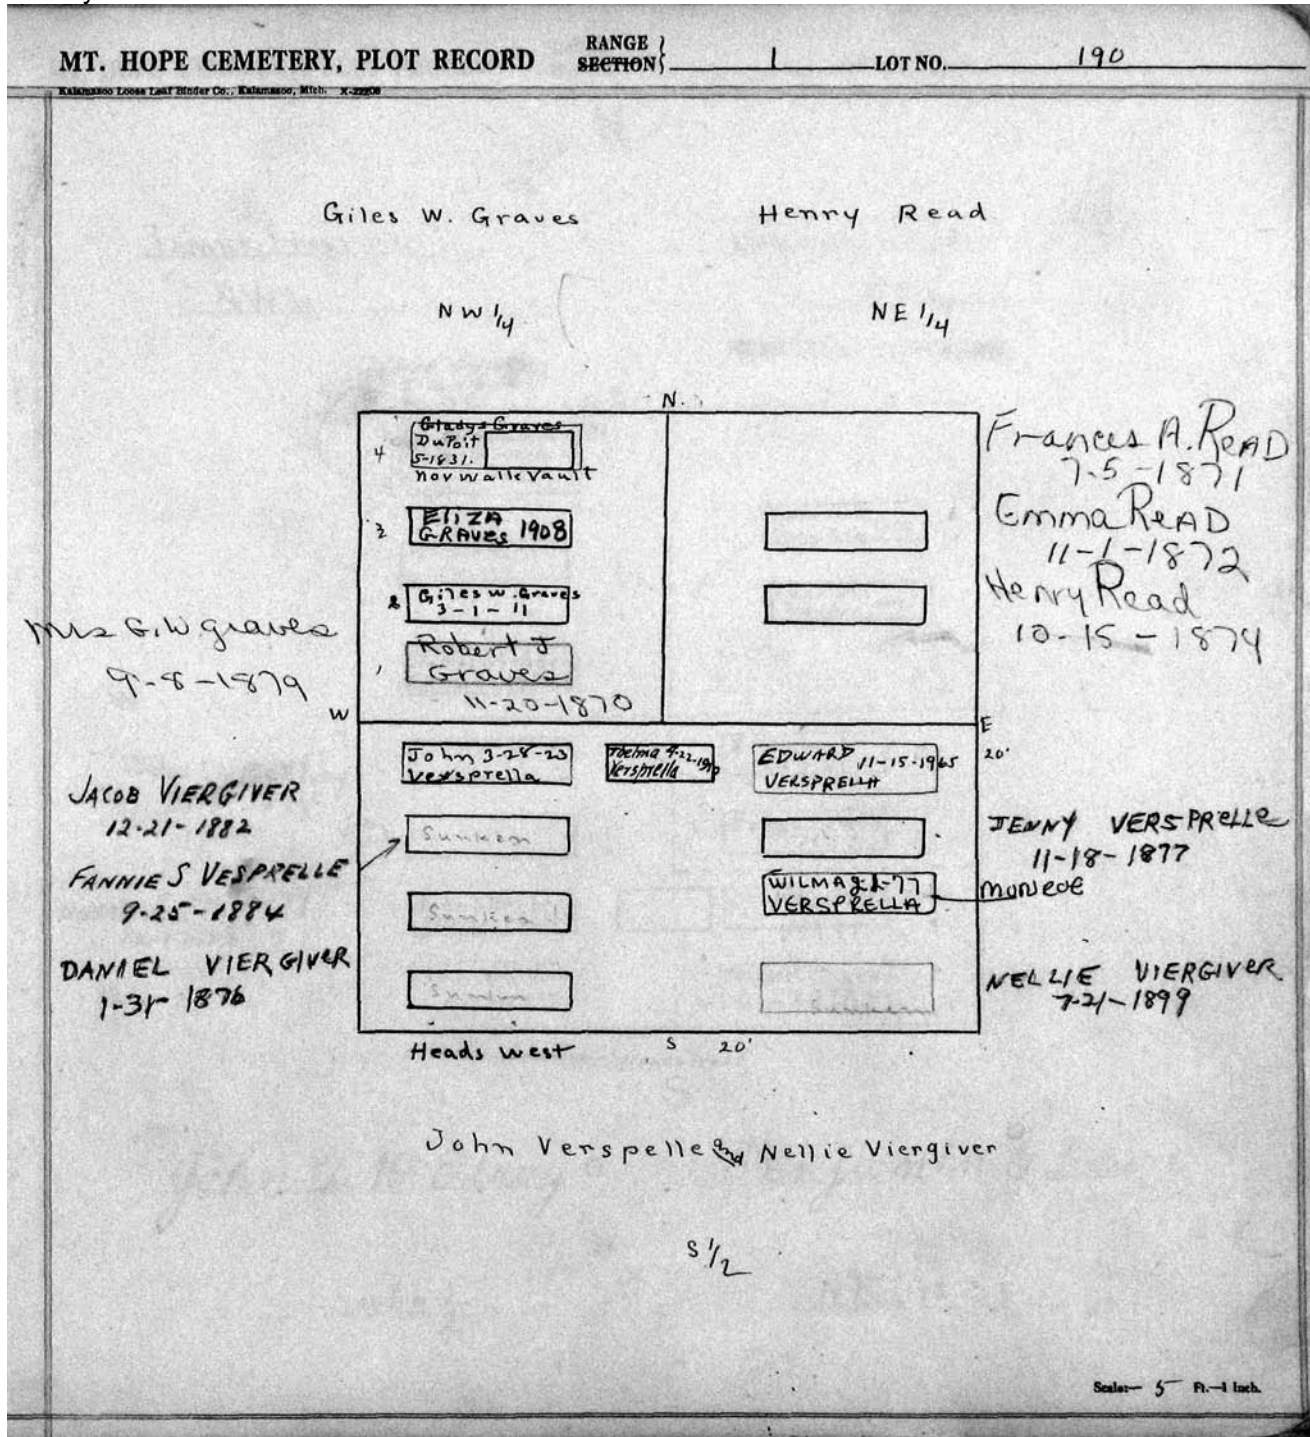 MT. HOPE CEMETERY, PLOT RECORD
RANGE
SECTION
1
LOT NO. 190
Kalamazoo Loose Leaf Binder Co., Kalamazoo, Mich. X-22208
Giles W. Graves
Henry Read
NW 1/4
NE 1/4
N.
4
Gladys Graves
DuPoit
5-1831.
Norwalk Vault
3
ELIZA
GRAVES 1908
2
Giles W. Graves
3-1-11
1
Robert J
Graves
11-20-1870
Frances A. READ
7-5-1871
Emma READ
11-1-1872
Henry Read
10-15-1874
Mrs G. W graves
9-8-1879
W
E
John 3-28-23
Versprella
Thelma
Versprella
EDWARD 11-15-1965
VERSPRELLA
20'
JACOB VIERGIVER
12-21-1882
Sunken
JENNY VERSPRELLE
11-18-1877
FANNIE S VESPRELLE
9-25-1884
Sunken
WILMA
VERSPRELLA
Monroe
DANIEL VIERGIVER
1-31-1876
Sunken
Sunken
NELLIE VIERGIVER
7-21-1899
Heads West
S 20'
John Verspelle and Nellie Viergiver
S 1/2
Scale— 5 Ft.—1 Inch.